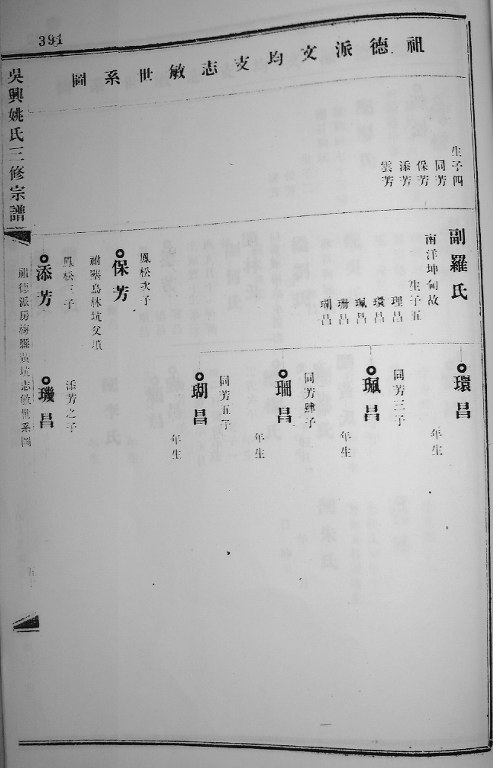 391
祖德派文均支志敏世系圖
吳興姚氏三修宗譜
生子四
同芳
保芳
添芳
雲芳
副羅氏
南洋坤甸故
生子五
理昌
環昌
珮昌
珊昌
瑚昌
鳳松次子
保芳
鳳松三子
添芳
環昌
年生
同芳三子
珮昌
年生
同芳肆子
珊昌
年生
同芳五子
瑚昌
年生
添芳之子
璣昌
志敏世系圖
五